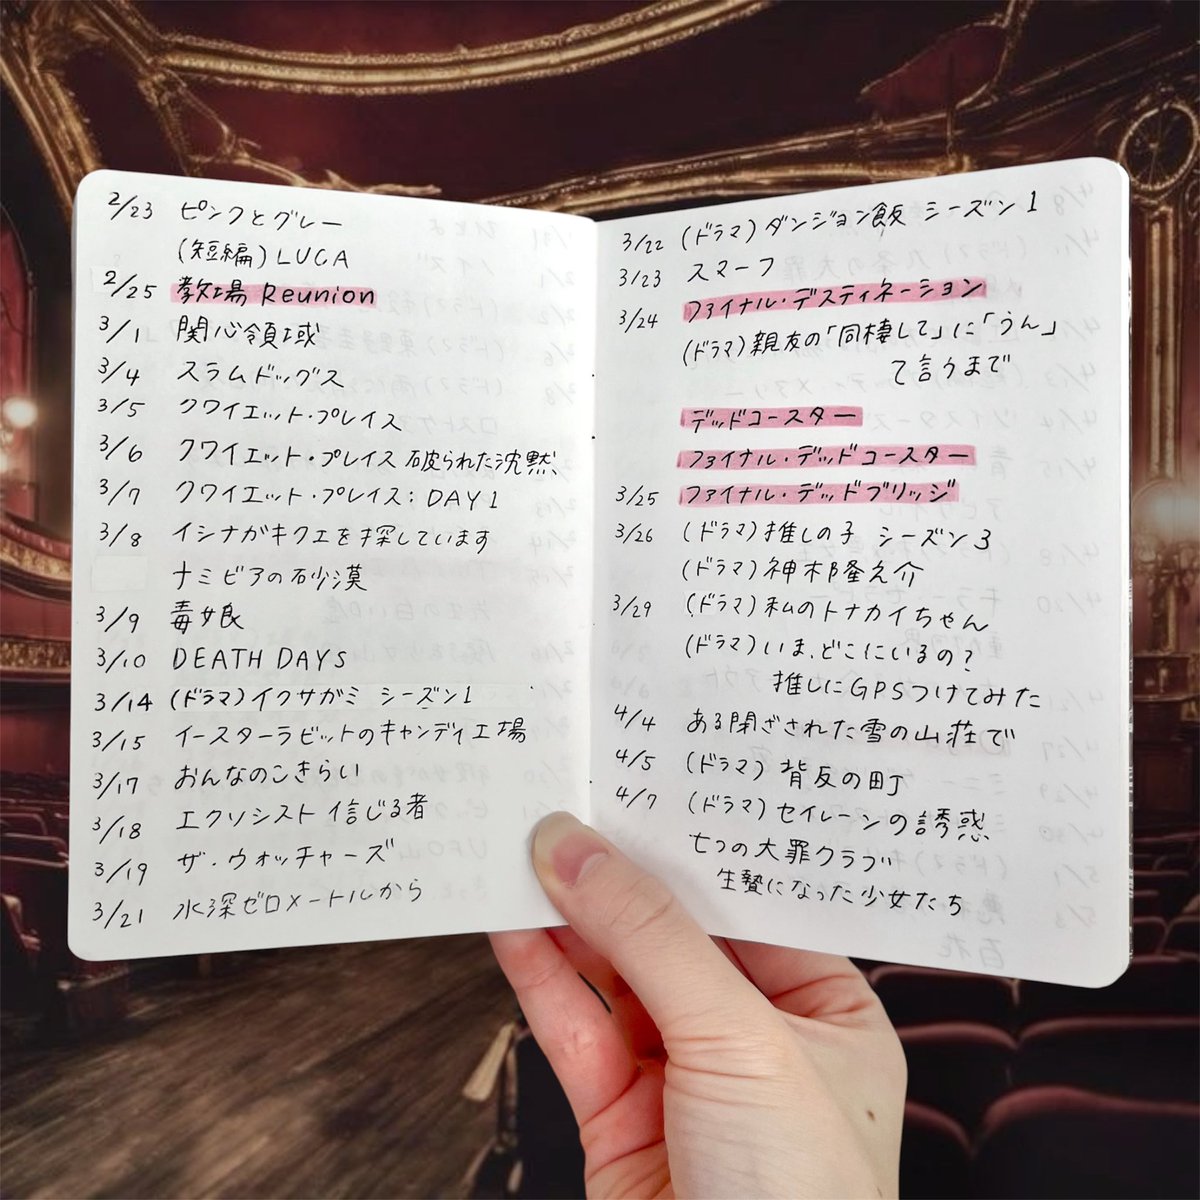 2/23 ピンクとグレー
(短編) LUCA
2/25 教場 Reunion
3/1 関心領域
3/4 スラムドッグス
3/5 クワイエット・プレイス
3/6 クワイエット・プレイス 破られた沈黙
3/7 クワイエット・プレイス:DAY1
3/8 イシナガキクエを探しています
ナミビアの砂漠
3/9 毒娘
3/10 DEATH DAYS
3/14 (ドラマ)イクサガミ シーズン1
3/15 イースターラビットのキャンディ工場
3/17 おんなのこきらい
3/18 エクソシスト 信じる者
3/19 ザ・ウォッチャーズ
3/21 水深ゼロメートルから
3/22 (ドラマ)ダンジョン飯 シーズン1
3/23 スマーフ
ファイナル・デスティネーション
3/24
(ドラマ)親友の「同棲して」に「うん」
て言うまで
デッドコースター
ファイナル・デッドコースター
3/25 ファイナル・デッドブリッジ
3/26 (ドラマ)推しの子 シーズン3
(ドラマ)神木隆之介
3/29 (ドラマ)私のトナカイちゃん
(ドラマ)いま、どこにいるの?
推しにGPSつけてみた
4/4 ある閉ざされた雪の山荘で
4/5 (ドラマ)背反の町
4/7 (ドラマ)セイレーンの誘惑
七つの大罪クラブ
生贄になった少女たち